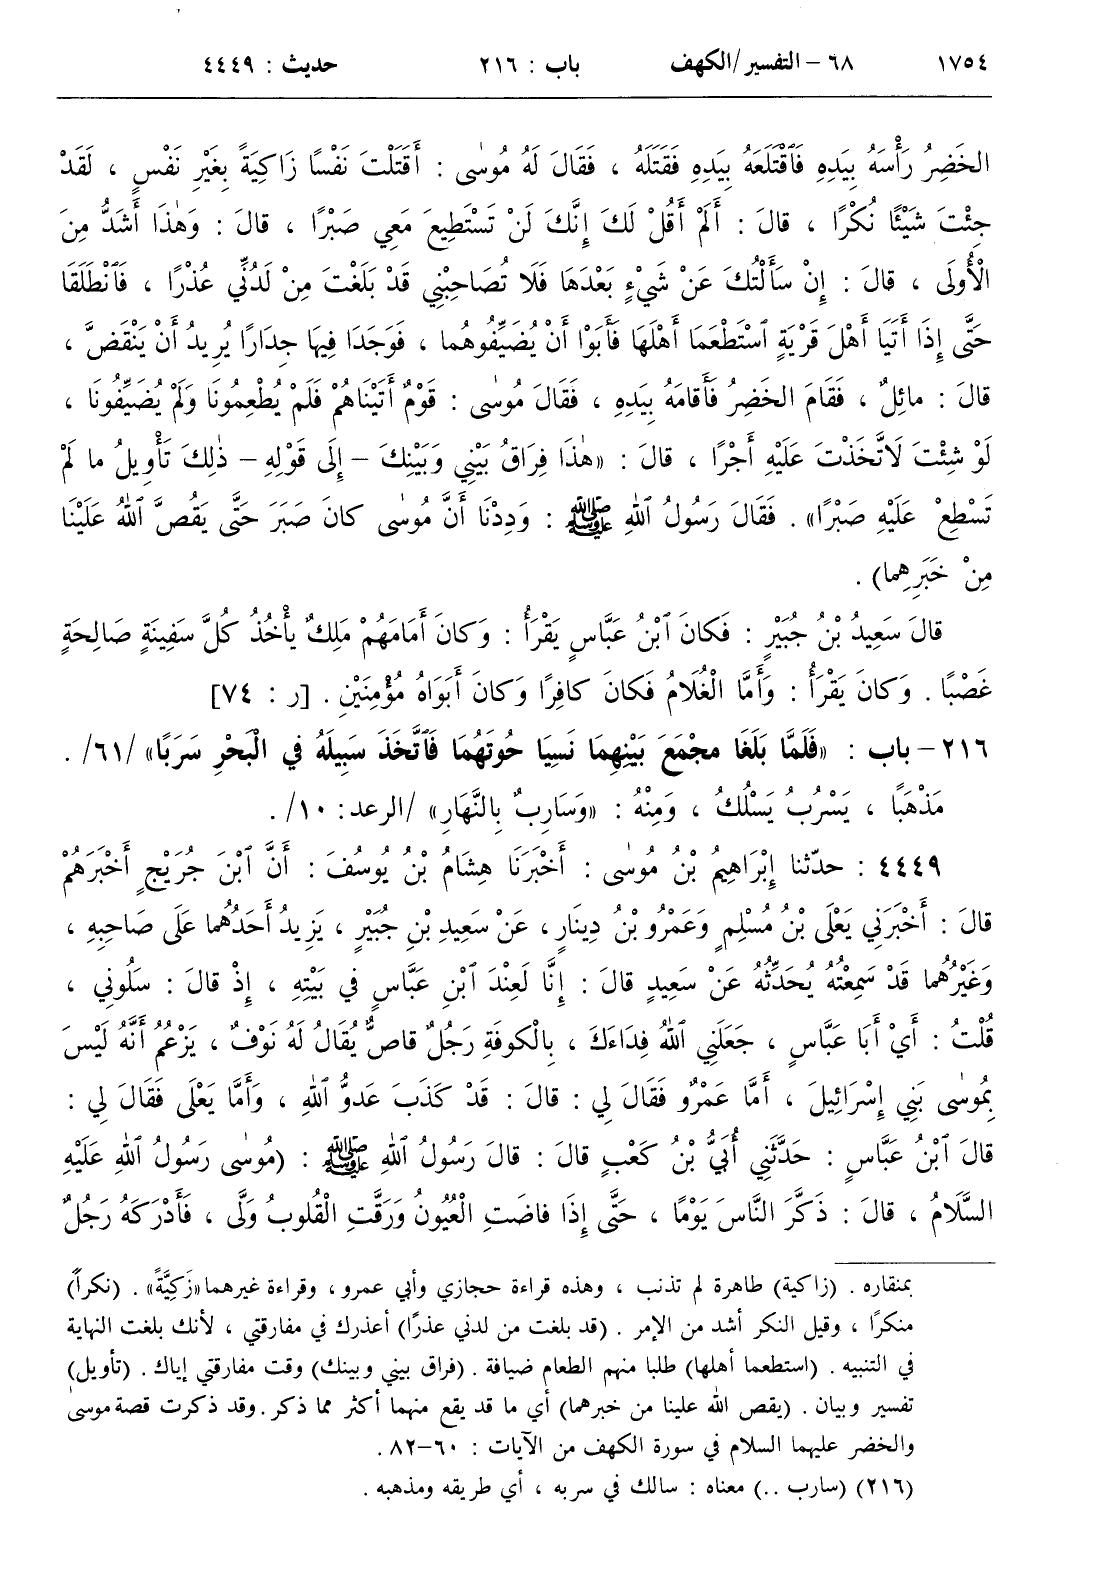 ١٧٥٤ ٦٨ – التفسير/الكهف باب : ٢١٦ حديث : ٤٤٤٩
الخَضِرُ رَأْسَهُ بِيَدِهِ فَٱقْتَلَعَهُ بِيَدِهِ فَقَتَلَهُ ، فَقَالَ لَهُ مُوسٰى : أَقَتَلْتَ نَفْسًا زَاكِيَةً بِغَيْرِ نَفْسٍ ، لَقَدْ
جِئْتَ شَيْئًا نُكْرًا ، قالَ : أَلَمْ أَقُلْ لَكَ إِنَّكَ لَنْ تَسْتَطِيعَ مَعِي صَبْرًا ، قالَ : وَهٰذَا أَشَدُّ مِنَ
الْأُولَى ، قالَ : إِنْ سَأَلْتُكَ عَنْ شَيْءٍ بَعْدَهَا فَلَا تُصَاحِبْنِي قَدْ بَلَغْتَ مِنْ لَدُنِّي عُذْرًا ، فَٱنْطَلَقَا
حَتَّى إِذَا أَتَيَا أَهْلَ قَرْيَةٍ ٱسْتَطْعَمَا أَهْلَهَا فَأَبَوْا أَنْ يُضَيِّفُوهُما ، فَوَجَدَا فِيهَا جِدَارًا يُرِيدُ أَنْ يَنْقَضَّ ،
قالَ : مائِلٌ ، فَقَامَ الخَضِرُ فَأَقامَهُ بِيَدِهِ ، فَقَالَ مُوسٰى : قَوْمٌ أَتَيْنَاهُمْ فَلَمْ يُطْعِمُونَا وَلَمْ يُضَيِّفُونَا ،
لَوْ شِئْتَ لَاتَّخَذْتَ عَلَيْهِ أَجْرًا ، قالَ : «هٰذَا فِرَاقُ بَيْنِي وَبَيْنِكَ – إِلَى قَوْلِهِ – ذٰلِكَ تَأْوِيلُ ما لَمْ
تَسْطِعْ عَلَيْهِ صَبْرًا» . فَقَالَ رَسُولُ ٱللهِ ﷺ : وَدِدْنَا أَنَّ مُوسٰى كانَ صَبَرَ حَتَّى يَقُصَّ ٱللهُ عَلَيْنَا
مِنْ خَبَرِهِما) .
قالَ سَعِيدُ بْنُ جُبَيْرٍ : فَكانَ ٱبْنُ عَبَّاسٍ يَقْرَأُ : وَكانَ أَمَامَهُمْ مَلِكٌ يأْخُذُ كُلَّ سَفِينَةٍ صَالِحَةٍ
غَصْبًا . وَكانَ يَقْرَأُ : وَأَمَّا الْغُلَامُ فَكانَ كافِرًا وَكانَ أَبَوَاهُ مُؤْمِنَيْنِ . [ر : ٧٤]
٢١٦ – باب : «فَلَمَّا بَلَغَا مَجْمَعَ بَيْنِهِمَا نَسِيَا حُوتَهُمَا فَٱتَّخَذَ سَبِيلَهُ فِي الْبَحْرِ سَرَبًا» /٦١/ .
مَذْهَبًا ، يَسْرُبُ يَسْلُكُ ، وَمِنْهُ : «وَسَارِبٌ بِالنَّهَارِ» /الرعد: ١٠/ .
٤٤٤٩ : حدّثنا إِبْرَاهِيمُ بْنُ مُوسٰى : أَخْبَرَنَا هِشَامُ بْنُ يُوسُفَ : أَنَّ ٱبْنَ جُرَيْجٍ أَخْبَرَهُمْ
قالَ : أَخْبَرَنِي يَعْلَى بْنُ مُسْلِمٍ وَعَمْرُو بْنُ دِينَارٍ ، عَنْ سَعِيدِ بْنِ جُبَيْرٍ ، يَزِيدُ أَحَدُهُما عَلَى صَاحِبِهِ ،
وَغَيْرُهُما قَدْ سَمِعْتُهُ يُحَدِّثُهُ عَنْ سَعِيدٍ قالَ : إِنَّا لَعِنْدَ ٱبْنِ عَبَّاسٍ فِي بَيْتِهِ ، إِذْ قالَ : سَلُونِي ،
قُلْتُ : أَيْ أَبَا عَبَّاسٍ ، جَعَلَنِي ٱللهُ فِدَاءَكَ ، بِالْكوفَةِ رَجُلٌ قاصٌّ يُقَالُ لَهُ نَوْفٌ ، يَزْعُمُ أَنَّهُ لَيْسَ
بِمُوسٰى بَنِي إِسْرَائِيلَ ، أَمَّا عَمْرٌو فَقَالَ لِي : قالَ : قَدْ كَذَبَ عَدوُّ ٱللهِ ، وَأَمَّا يَعْلَى فَقَالَ لِي :
قالَ ٱبْنُ عَبَّاسٍ : حَدَّثَنِي أُبَيُّ بْنُ كَعْبٍ قالَ : قالَ رَسُولُ ٱللهِ ﷺ : (مُوسٰى رَسُولُ ٱللهِ عَلَيْهِ
السَّلَامُ ، قالَ : ذَكَّرَ النَّاسَ يَوْمًا ، حَتَّى إِذَا فاضَتِ الْعُيُونُ وَرَقَّتِ الْقُلوبُ وَلَّى ، فَأَدْرَكَهُ رَجُلٌ
بمنقاره . (زاكية) طاهرة لم تذنب ، وهذه قراءة حجازي وأبي عمرو ، وقراءة غيرهما «زَكِيَّةً» . (نكراً)
منكرًا ، وقيل النكر أشد من الإمر . (قد بلغت من لدني عذرًا) أعذرك في مفارقتي ، لأنك بلغت النهاية
في التنبيه . (استطعما أهلها) طلبا منهم الطعام ضيافة . (فراق بيني وبينك) وقت مفارقتي إياك . (تأويل)
تفسير وبيان . (يقص الله علينا من خبرهما) أي ما قد يقع منهما أكثر مما ذكر . وقد ذكرت قصة موسىٰ
والخضر عليهما السلام في سورة الكهف من الآيات : ٦٠–٨٢ .
(٢١٦) (سارب ..) معناه : سالك في سربه ، أي طريقه ومذهبه .